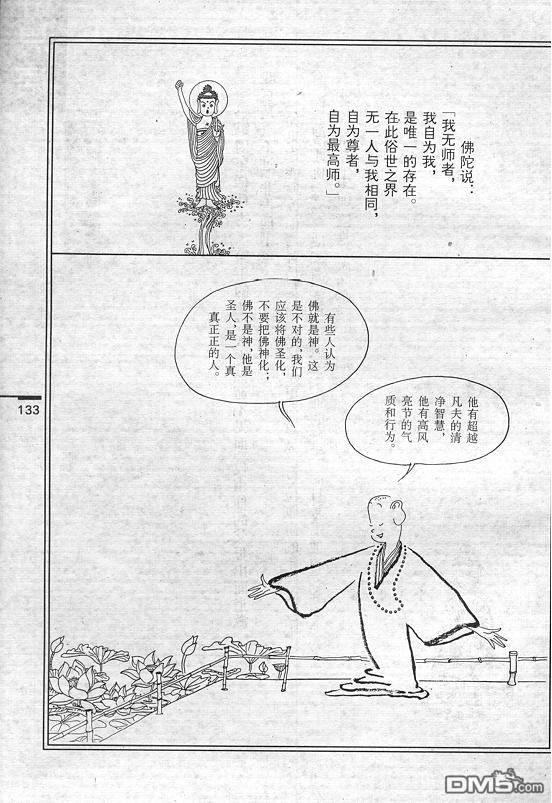 佛陀说：
「我无师者，
我自为我，
是唯一的存在。
在此俗世之界
无一人与我相同，
自为尊者，
自为最高师。」
有些人认为
佛就是神。这
是不对的，我们
应该将佛圣化，
不要把佛神化；
佛不是神，他是
圣人，是一个真
真正正的人。
他有超越
凡夫的清
净智慧，
他有高风
亮节的气
质和行为。
133
DM5.com